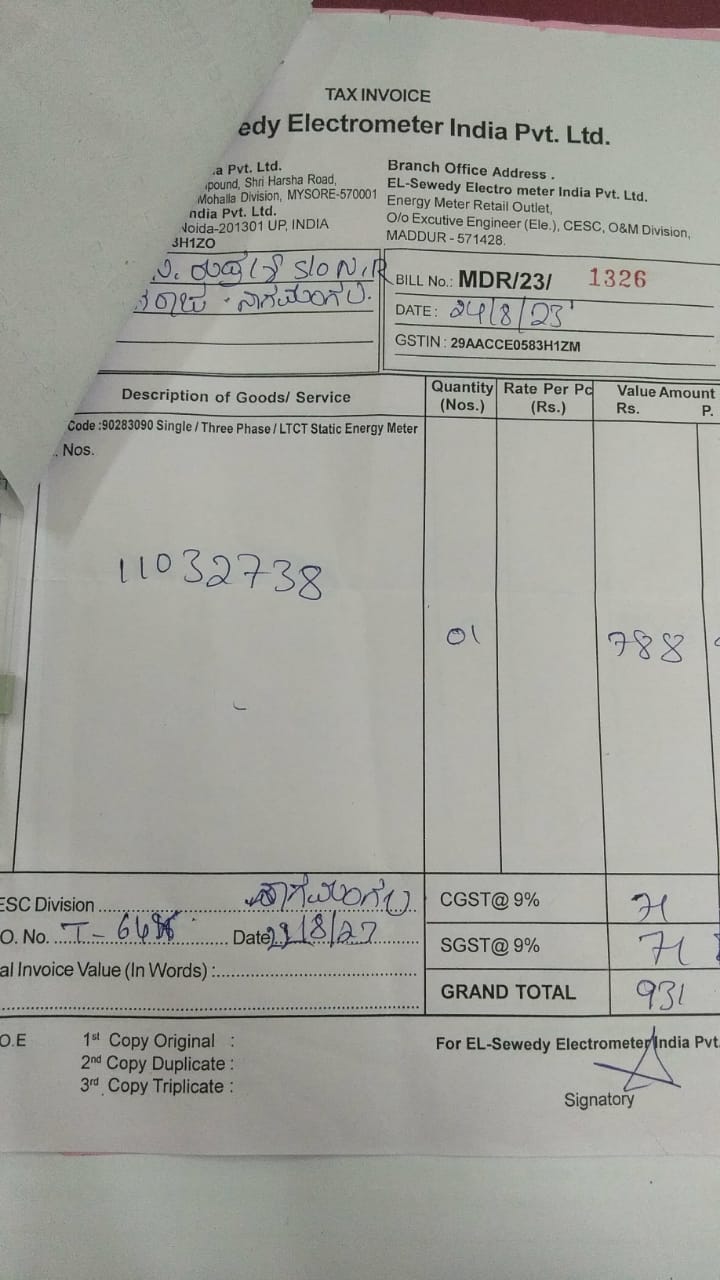 TAX INVOICE
edy Electrometer India Pvt. Ltd.
.a Pvt. Ltd.
pound, Shri Harsha Road,
Mohalla Division, MYSORE-570001
ndia Pvt. Ltd.
Noida-201301 UP, INDIA
3H1ZO
Branch Office Address .
EL-Sewedy Electro meter India Pvt. Ltd.
Energy Meter Retail Outlet,
O/o Excutive Engineer (Ele.), CESC, O&M Division,
MADDUR - 571428.
S/O N.R
ನಾಗಮಂಗಲ.
BILL No.: MDR/23/ 1326
DATE : 24/8/23
GSTIN : 29AACCE0583H1ZM
Description of Goods/ Service
Quantity (Nos.)
Rate Per Pc (Rs.)
Value Amount
Rs. P.
Code :90283090 Single / Three Phase / LTCT Static Energy Meter
. Nos.
11032738
01
788
ESC Division ನಾಗಮಂಗಲ
CGST@ 9% 71
O. No. T - Date
SGST@ 9% 71
al Invoice Value (In Words) :
GRAND TOTAL 931
O.E
1st Copy Original :
2nd Copy Duplicate :
3rd Copy Triplicate :
For EL-Sewedy Electrometer India Pvt.
Signatory